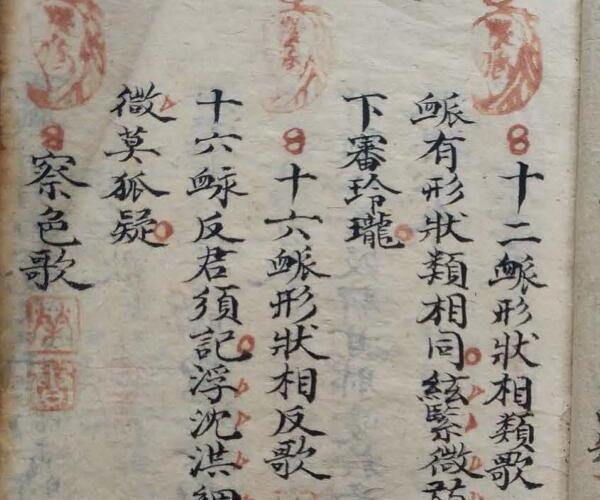 十二脈形狀相類歌
脈有形狀類相同絃緊微
下審玲瓏
十六脈形狀相反歌
十六脈反君須記浮沈洪細
微莫狐疑
察色歌